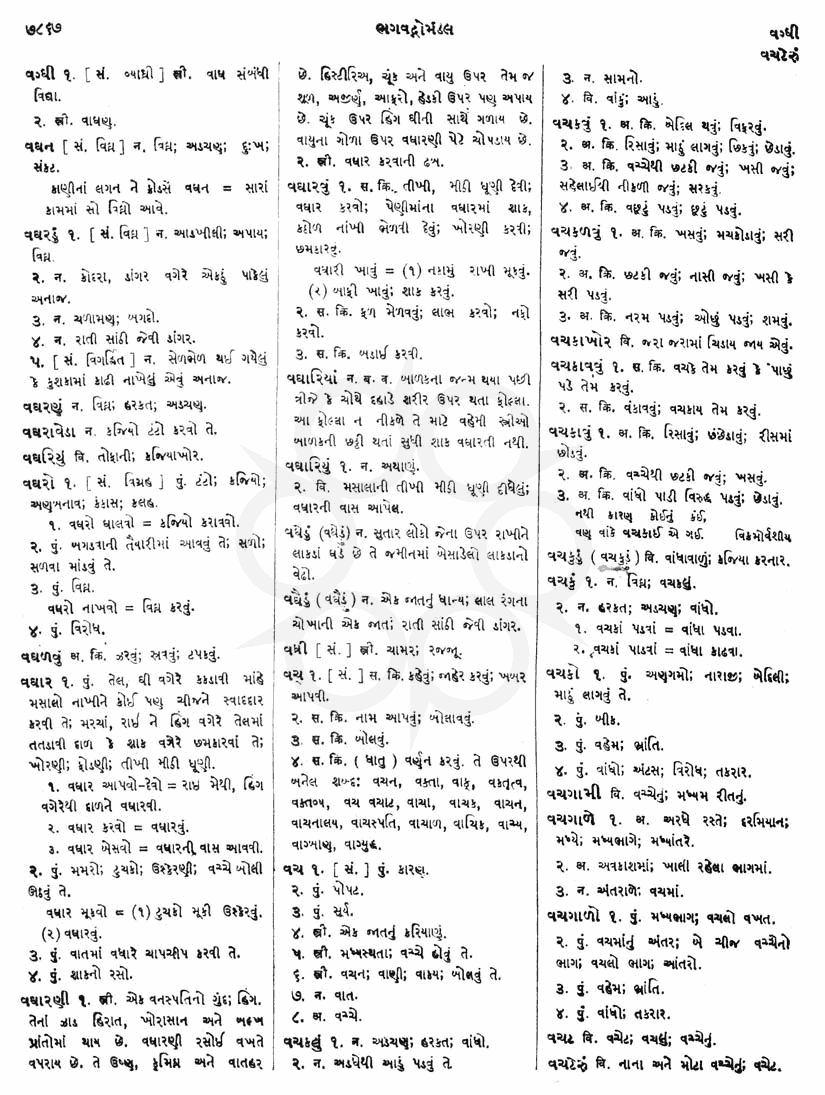 ૭૮૬૭
ભગવદ્ગોમંડલ
વગ્ધી
વચટેરું
વગ્ધી ૧. [ સં. વ્યાઘ્રી ] સ્ત્રી. વાઘ સંબંધી
વિદ્યા.
૨. સ્ત્રી. વાઘણ.
વઘન [ સં. વિઘ્ન ] ન. વિઘ્ન; અડચણ; દુઃખ;
સંકટ.
કાણીનાં લગન ને ક્રોડસે વઘન = સારાં
કામમાં સો વિઘ્નો આવે.
વઘરડું ૧. [ સં. વિઘ્ન ] ન. આડખીલી; અપાય;
વિઘ્ન.
૨. ન. કોદરા, ડાંગર વગેરે એકઠું પાકેલું
અનાજ.
૩. ન. ચળામણ; બગદો.
૪. ન. રાતી સાંઠી જેવી ડાંગર.
૫. [ સં. વિગર્હિત ] ન. સેળભેળ થઈ ગયેલું
કે કુશકામાં કાઢી નાખેલું એવું અનાજ.
વઘરણું ન. વિઘ્ન; હરકત; અડચણ.
વઘરાવેડા ન. કજિયો ટંટો કરવો તે.
વઘરિયું વિ. તોફાની; કજિયાખોર.
વઘરો ૧. [ સં. વિગ્રહ ] પું. ટંટો; કજિયો;
અણબનાવ; કંકાસ; કલહ.
૧. વઘરો ઘાલવો = કજિયો કરાવવો.
૨. પું. બગડવાની તૈયારીમાં આવવું તે; સળો;
સળવા માંડવું તે.
૩. પું. વિઘ્ન.
વઘરો નાખવો = વિઘ્ન કરવું.
૪. પું. વિરોધ.
વઘળવું અ. ક્રિ. ઝરવું; સ્રવવું; ટપકવું.
વઘાર ૧. પું. તેલ, ઘી વગેરે કકડાવી માંહે
મસાલો નાખીને કોઈ પણ ચીજને સ્વાદદાર
કરવી તે; મરચાં, રાઈ ને હિંગ વગેરે તેલમાં
તતડાવી દાળ કે શાક વગેરે છમકારવાં તે;
ખોરણી; ફોડણી; તીખી મીઠી ધૂણી.
૧. વઘાર આપવો-દેવો = રાઈ મેથી, હિંગ
વગેરેથી દાળને વઘારવી.
૨. વઘાર કરવો = વઘારવું.
૩. વઘાર બેસવો = વઘારની વાસ આવવી.
૨. પું. મમરો; ટુચકો; ઉશ્કેરણી; વચ્ચે બોલી
ઊઠવું તે.
વઘાર મૂકવો = (૧) ટુચકો મૂકી ઉશ્કેરવું.
(૨) વઘારવું.
૩. પું. વાતમાં વધારે ચાપચીપ કરવી તે.
૪. પું. શાકનો રસો.
વઘારણી ૧. સ્ત્રી. એક વનસ્પતિનો ગુંદ; હિંગ.
તેનાં ઝાડ હિરાત, ખોરાસાન અને બલ્ખ
પ્રાંતોમાં થાય છે. વઘારણી રસોઈ વખતે
વપરાય છે. તે ઉષ્ણ, કૃમિઘ્ન અને વાતહર
છે. હિસ્ટીરિઅ, ચૂંક અને વાયુ ઉપર તેમ જ
શૂળ, અજીર્ણ, આફરો, હેડકી ઉપર પણ અપાય
છે. ચૂંક ઉપર હિંગ ઘીની સાથે ગળાય છે.
વાયુના ગોળા ઉપર વઘારણી પેટે ચોપડાય છે.
૨. સ્ત્રી. વઘાર કરવાની ઢબ.
વઘારવું ૧. સ. ક્રિ. તીખી, મીઠી ધૂણી દેવી;
વઘાર કરવો; પેણીમાંના વઘારમાં શાક,
કઠોળ નાંખી ભેળવી દેવું; ખોરણી કરવી;
છમકારવું.
વઘારી ખાવું = (૧) નકામું રાખી મૂકવું.
(૨) બાફી ખાવું; શાક કરવું.
૨. સ. ક્રિ. ફળ મેળવવું; લાભ કરવો; નફો
કરવો.
૩. સ. ક્રિ. બડાઈ કરવી.
વઘારિયાં ન. બ. વ. બાળકના જન્મ થયા પછી
ત્રીજે કે ચોથે દહાડે શરીર ઉપર થતા ફોલ્લા.
આ ફોલ્લા ન નીકળે તે માટે વહેમી સ્ત્રીઓ
બાળકની છઠ્ઠી થતાં સુધી શાક વઘારતી નથી.
વઘારિયું ૧. ન. અથાણું.
૨. વિ. મસાલાની તીખી મીઠી ધૂણી દીધેલું;
વઘારની વાસ આપેલ.
વઘેડું (વઘૅડું) ન. સુતાર લોકો જેના ઉપર રાખીને
લાકડાં ઘડે છે તે જમીનમાં બેસાડેલો લાકડાનો
વેઢો.
વઘૈડું (વઘૈડું) ન. એક જાતનું ધાન્ય; લાલ રંગના
ચોખાની એક જાત; રાતી સાંઠી જેવી ડાંગર.
વઘ્રી [ સં. ] સ્ત્રી. ચામર; રજ્જૂ.
વચ્ ૧. [ સં. ] સ. ક્રિ. કહેવું; જાહેર કરવું; ખબર
આપવી.
૨. સ. ક્રિ. નામ આપવું; બોલાવવું.
૩. સ. ક્રિ. બોલવું.
૪. સ. ક્રિ. ( ધાતુ ) વર્ણન કરવું. તે ઉપરથી
બનેલ શબ્દ: વચન, વક્તા, વાક્, વકતૃત્વ,
વક્તવ્ય, વચ વચાટ, વાચા, વાચક, વાચન,
વાચનાલય, વાચસ્પતિ, વાચાળ, વાચિક, વાચ્ય,
વાગ્બાણ, વાગ્યુદ્ધ.
વચ ૧. [ સં. ] પું. કારણ.
૨. પું. પોપટ.
૩. પું. સૂર્ય.
૪. સ્ત્રી. એક જાતનું કરિયાણું.
૫. સ્ત્રી. મધ્યસ્થતા; વચ્ચે હોવું તે.
૬. સ્ત્રી. વચન; વાણી; વાક્ય; બોલવું તે.
૭. ન. વાત.
૮. અ. વચ્ચે.
વચકલું ૧. ન. અડચણ; હરકત; વાંધો.
૨. ન. અડધેથી આડું પડવું તે
૩. ન. સામનો.
૪. વિ. વાંકું; આડું.
વચકવું ૧. અ. ક્રિ. બેદિલ થવું; વિફરવું.
૨. અ. ક્રિ. રિસાવું; માઠું લાગવું; છિકવું; છેડાવું.
૩. અ. ક્રિ. વચ્ચેથી છટકી જવું; ખસી જવું;
સહેલાઈથી નીકળી જવું; સરકવું.
૪. અ. ક્રિ. વછૂટું પડવું; છૂટું પડવું.
વચકળવું ૧. અ. ક્રિ. ખસવું; મચકોડાવું; સરી
જવું.
૨. અ. ક્રિ. છટકી જવું; નાસી જવું; ખસી કે
સરી પડવું.
૩. અ. ક્રિ. નરમ પડવું; ઓછું પડવું; શમવું.
વચકાખોર વિ. જરા જરામાં ચિડાય જાય એવું.
વચકાવવું ૧. સ. ક્રિ. વચકે તેમ કરવું કે પાછું
પડે તેમ કરવું.
૨. સ. ક્રિ. વંકાવવું; વચકાય તેમ કરવું.
વચકાવું ૧. અ. ક્રિ. રિસાવું; છંછેડાવું; રીસમાં
છોડવું.
૨. અ. ક્રિ. વચ્ચેથી છટકી જવું; ખસવું.
૩. અ. ક્રિ. વાંધો પાડી વિરુદ્ધ પડવું; છેડાવું.
નથી કારણ કોઈનું કંઈ,
વણ વાંકે વચકાઈ એ ગઈ. વિક્રમોર્વશીય
વચકુડું ( વચકૂડું ) વિ. વાંધાવાળું; કજિયા કરનાર.
વચકું ૧. ન. વિઘ્ન; વચકલું.
૨. ન. હરકત; અડચણ; વાંધો.
૧. વચકાં પડવાં = વાંધા પડવા.
૨. વચકાં પાડવાં = વાંધા કાઢવા.
વચકો ૧. પું. અણગમો; નારાજી; બેદિલી;
માઠું લાગવું તે.
૨. પું. બીક.
૩. પું. વહેમ; ભ્રાંતિ.
૪. પું. વાંધો; અંટસ; વિરોધ; તકરાર.
વચગામી વિ. વચ્ચેનું; મધ્યમ રીતનું.
વચગાળે ૧. અ. અરધે રસ્તે; દરમિયાન;
મધ્યે; મધ્યભાગે; મધ્યાંતરે.
૨. અ. અવકાશમાં; ખાલી રહેલા ભાગમાં.
૩. ન. અંતરાળે; વચમાં.
વચગાળો ૧. પું. મધ્યભાગ; વચલો વખત.
૨. પું. વચમાંનું અંતર; બે ચીજ વચ્ચેનો
ભાગ; વચલો ભાગ; આંતરો.
૩. પું. વહેમ; ભ્રાંતિ.
૪. પું. વાંધો; તકરાર.
વચટ વિ. વચેટ; વચલું; વચ્ચેનું.
વચટેરું વિ. નાના અને મોટા વચ્ચેનું; વચેટ.